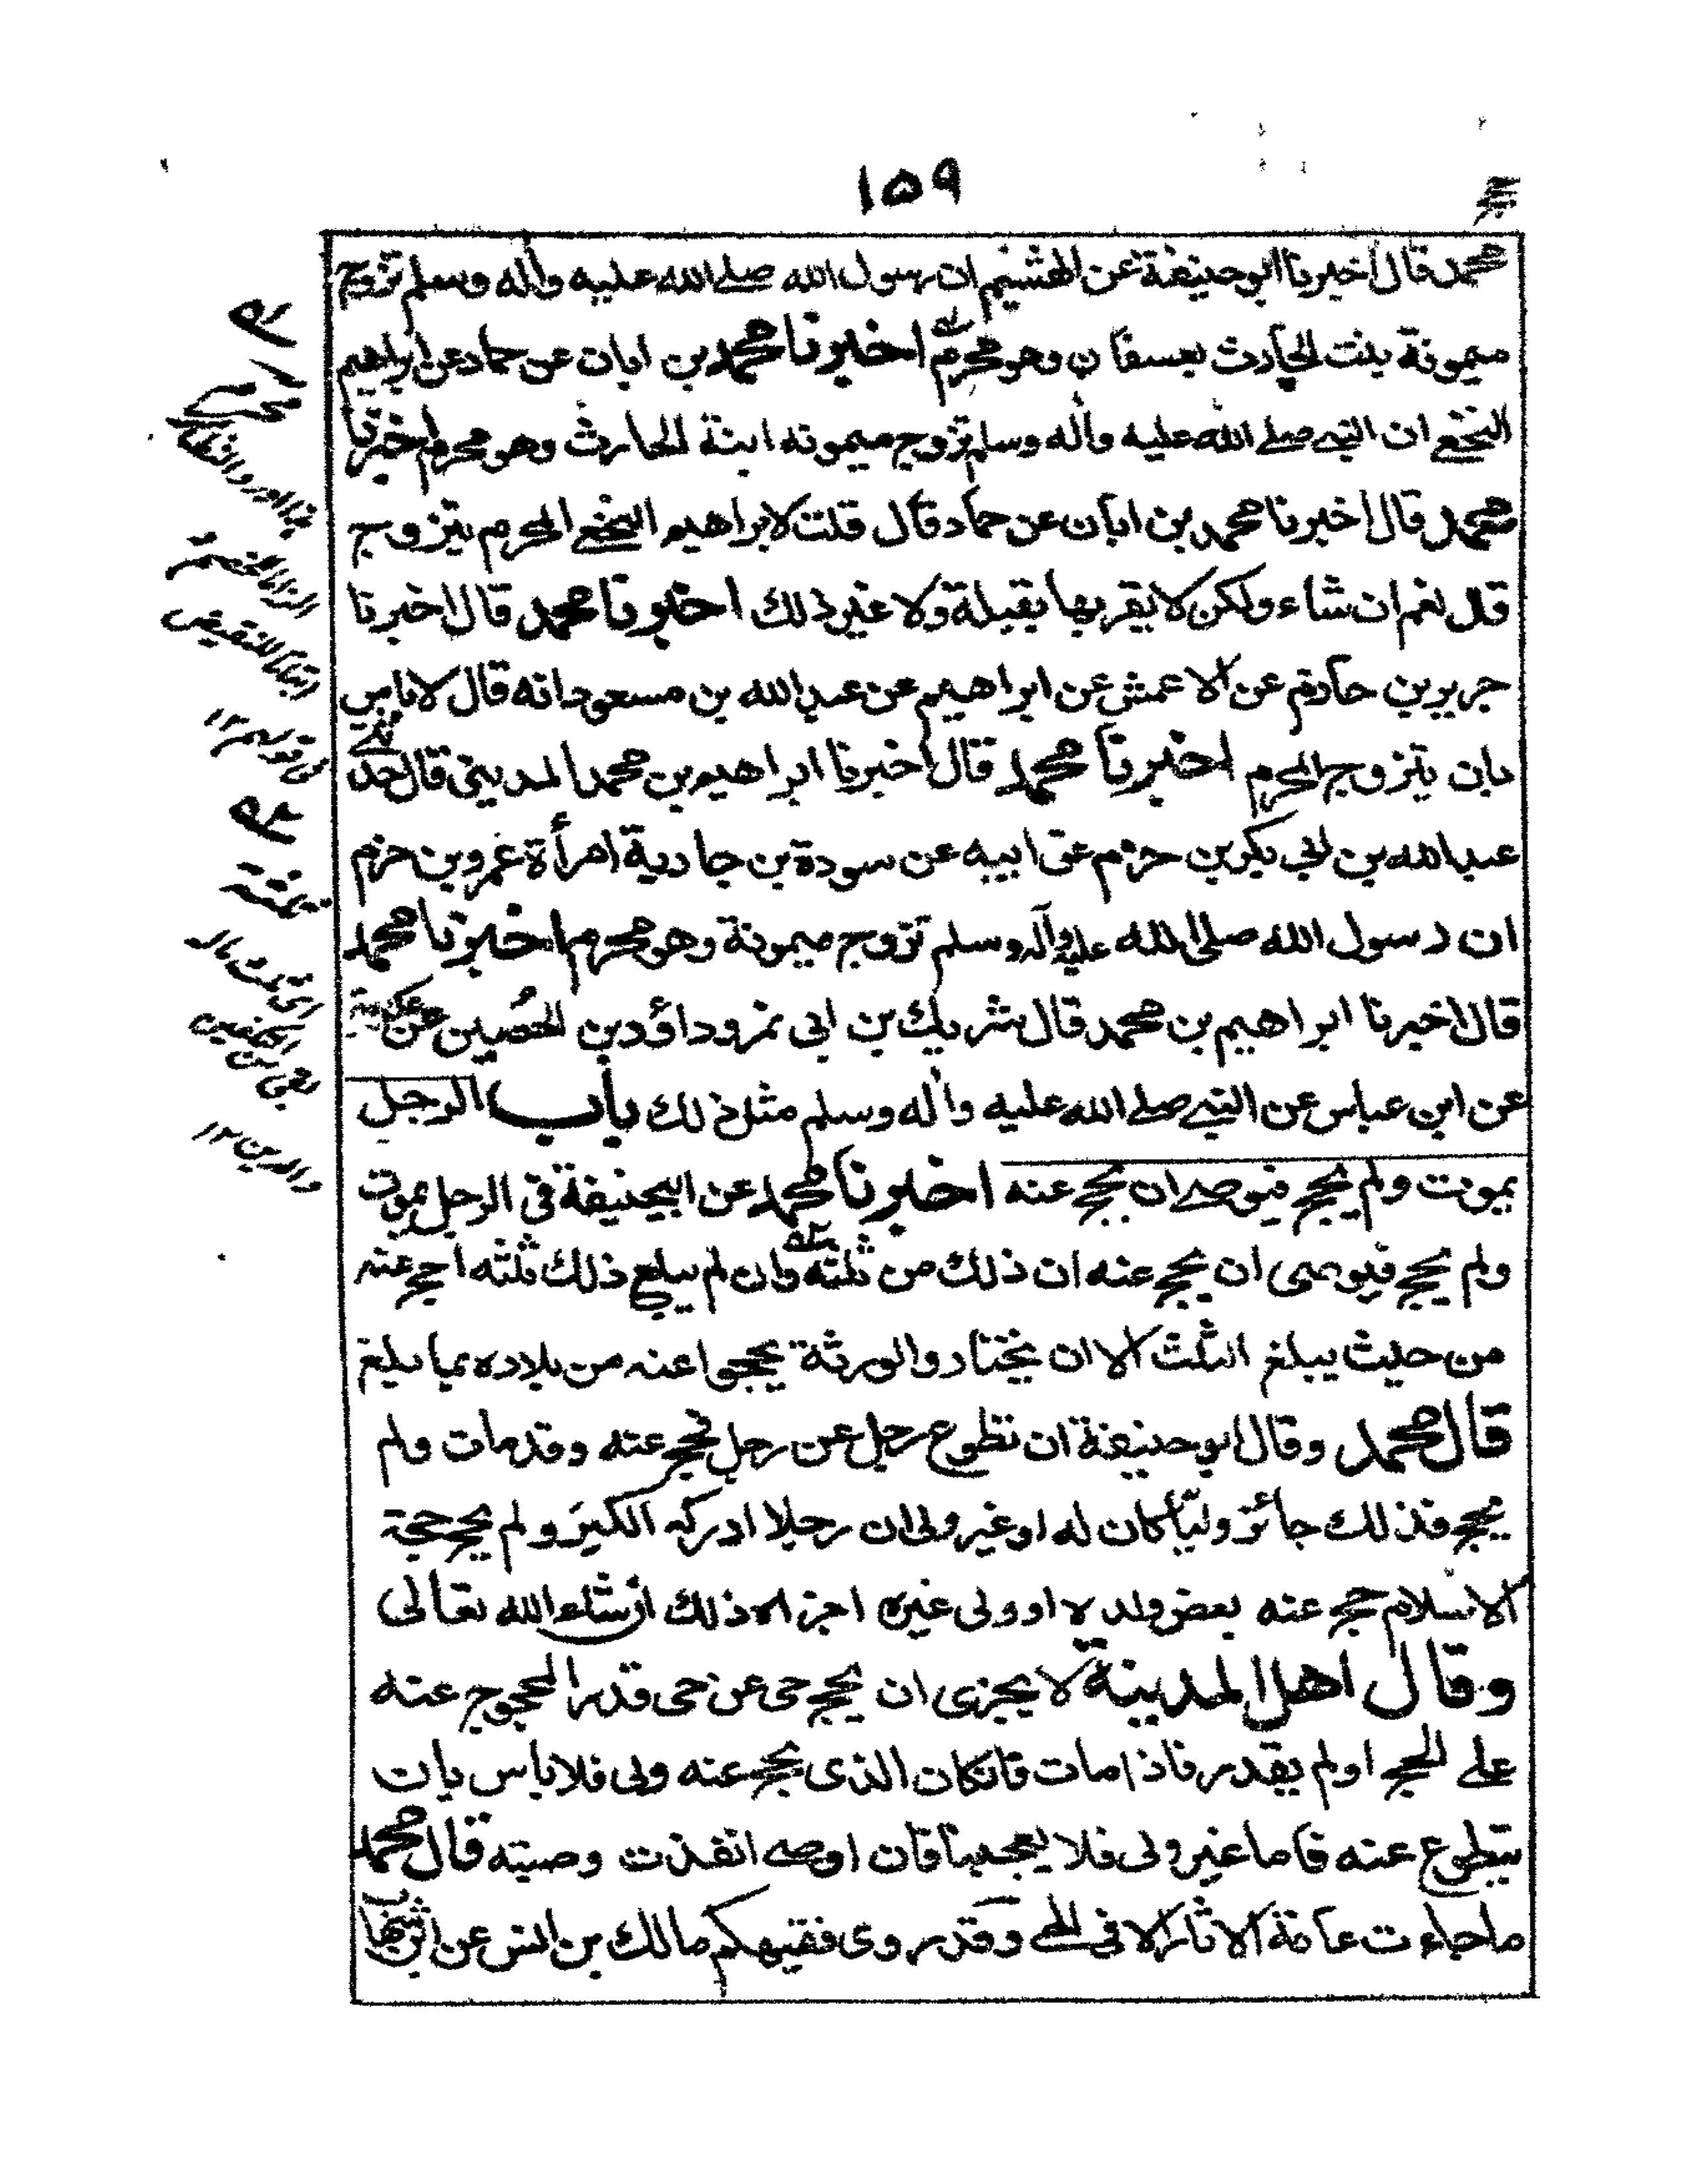 ١٥٩
محمد قال اخبرنا ابو حنيفة عن الهشيم ان رسول الله صلے الله عليه وأله وسلم تزوج
ميمونة بنت الحارث بعسفان وهو محرم اخبرنا محمد بن ابان عن حماد عن ابراهيم
النخعے ان النبے صلے الله عليه وأله وسلم تزوج ميمونه ابنة الحارث وهو محرم اخبرنا
محمد قال اخبرنا محمد بن ابان عن حماد قال قلت لابراهيم النخعے المحرم يتزوج
قال نعم ان شاء ولكن لا يقربها بقبلة ولا غير ذلك اخبرنا محمد قال اخبرنا
جرير بن حازم عن الاعمش عن ابراهيم عن عبد الله بن مسعود انه قال لا باس
بان يتزوج المحرم اخبرنا محمد قال اخبرنا ابراهيم بن محمد المدينى قال حدثنے
عبد الله بن ابى بكر بن حزم عن ابيه عن سودة بن جارية امرأة عمرو بن حزم
ان رسول الله صلى الله عليه وآله وسلم تزوج ميمونة وهو محرم اخبرنا محمد
قال اخبرنا ابراهيم بن محمد قال شريك بن ابى نمر وداؤد بن الحُصين عن عكرمة
عن ابن عباس عن النبے صلے الله عليه وأله وسلم مثل ذلك باب الرجل
يموت ولم يحج فيوصے ان يحج عنه اخبرنا محمد عن ابيحنيفة فى الرجل يموت
ولم يحج فيوصى ان يحج عنه ان ذلك من ثلثه وان لم يبلغ ذلك ثلثه احج عنه
من حيث يبلغ الثلث الا ان يختار والورثة يحجوا عنه من بلاده بما بلغ
قال محمد وقال ابو حنيفة ان تطوع رجل عن رجل فحج عنه وقد مات ولم
يحج فذلك جائز وليًا كان له او غير ولى ان رجلا ادركه الكبر ولم يحج حجة
الاسلام حج عنه بعض ولده او ولى غيره اجزاه ذلك ان شاء الله تعالى
وقال اهل المدينة لا يجزى ان يحج حى عن حى قدر المحجوج عنه
علے الحج او لم يقدر فاذا مات فانكان الذى يحج عنه ولى فلا باس بان
يتطوع عنه فاما غير ولى فلا يعجبنا فان اوصے انفذت وصيته قال محمد
ما جاءت عامة الاثار الا فى الحے وقد روى فقيهكم مالك بن انس عن ابن شهاب